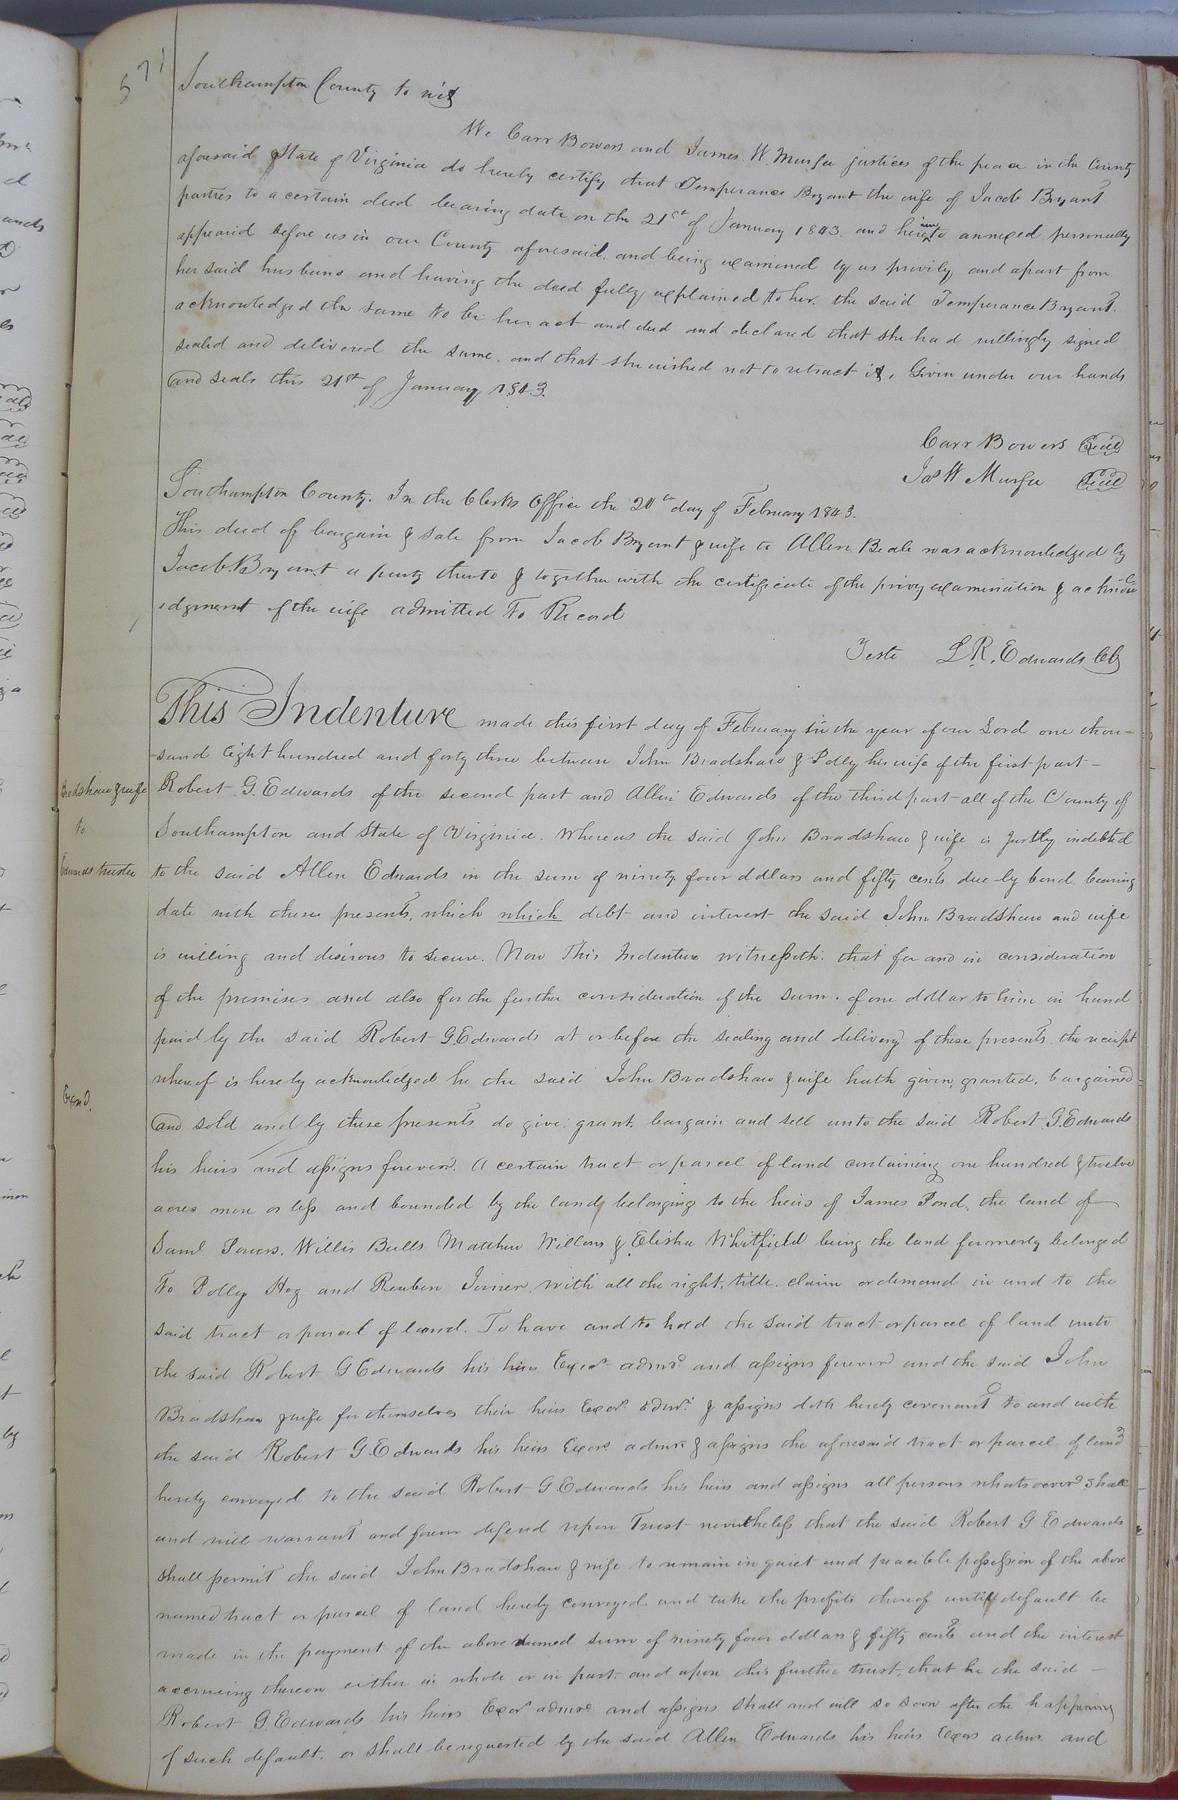 571
Southampton County to wit
We Carr Bowers and James W. Murfee justices of the peace in the County
aforesaid & State of Virginia do hereby certify that Temperance Bryant the wife of Jacob Bryant
parties to a certain deed bearing date on the 21st of January 1843. and hereunto annexed personally
appeared before us in our County aforesaid, and being examined by us privily and apart from
her said husband and having the deed fully explained to her, she said Temperance Bryant.
acknowledged the same to be her act and deed and declared that she had willingly signed
sealed and delivered the same. and that she wished not to retract it, Given under our hands
and seals this 21st of January 1843.
Carr Bowers Seal
Jas W Murfee Seal
Southampton County. In the Clerks Office the 20th day of February 1843.
This deed of bargain & sale from Jacob Bryant & wife to Allen Beale was acknowledged by
Jacob Bryant a party thereto & together with the certificate of the privy examination & acknowle
edgment of the wife admitted to Record
Teste L R. Edwards Clk
This Indenture made this first day of February in the year of our Lord one thou-
-sand Eight hundred and forty three between John Bradshaw & Polly his wife of the first part-
Bradshaw & wife
to
Edwards trustee
Robert. G. Edwards of the second part and Allen Edwards of the third part all of the County of
Southampton and State of Virginia. Whereas the said John Bradshaw & wife is justly indebted
to the said Allen Edwards in the sum of ninety four dollars and fifty cents due by bond bearing
date with these presents, which which debt and interest the said John Bradshaw and wife
is willing and desirous to secure. Now This Indenture witnesseth. that for and in consideration
of the premises and also for the further consideration of the sum. of one dollar to him in hand
paid by the said Robert G. Edwards at or before the sealing and delivery of these presents the receipt
whereof is hereby acknowledged he the said John Bradshaw & wife hath given, granted, bargained
Exmd.
and sold and by these presents do give. grant. bargain and sell unto the said Robert. G. Edwards
his heirs and assigns forever. A certain tract or parcel of land containing one hundred & twelve
acres more or less and bounded by the lands belonging to the heirs of James Pond, the land of
Saml Powers. Willis Bulls Matthew Willons & Elisha Whitfield being the land formerly belonged
to Polly Hog and Reuben Joiner. with all the right, title. claim or demand in and to the
said tract or parcel of land. To have and to hold the said tract or parcel of land unto
the said Robert G Edwards his heirs Exors admrs and assigns forever and the said John
Bradshaw & wife for themselves their heirs Exors admrs & assigns doth hereby covenant to and with
the said Robert G. Edwards his heirs Exors admrs & assigns the aforesaid tract or parcel of land
hereby conveyed to the said Robert G Edwards his heirs and assigns all persons whatsoever shall
and will warrant and forever defend upon Trust nevertheless that the said Robert G Edwards
shall permit the said John Bradshaw & wife to remain in quiet and peacible possession of the above
named tract or parcel of land hereby conveyed and take the profits thereof until default be
made in the payment of the above named sum of ninety four dollars & fifty cents and the interest
accrueing thereon either in whole or in part. and upon this further trust, that he the said -
Robert G Edwards his heirs Exors admrs and assigns shall and will so soon after the happening
of such default. or shall be requested by the said Allen Edwards his heirs Exors admrs and